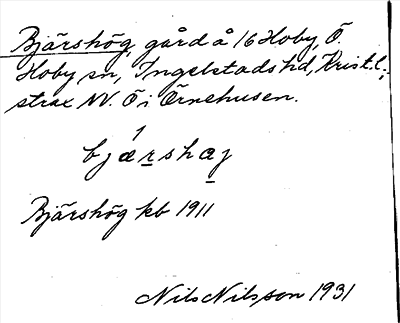 Bjärshög, gård å 16 Hoby, Ö.
Hoby sn, Ingelstads hd, Krist. l.;
strax NV. Ö i Örnehusen.
bjærshəg
Bjärshög kb 1911
Nils Nilsson 1931